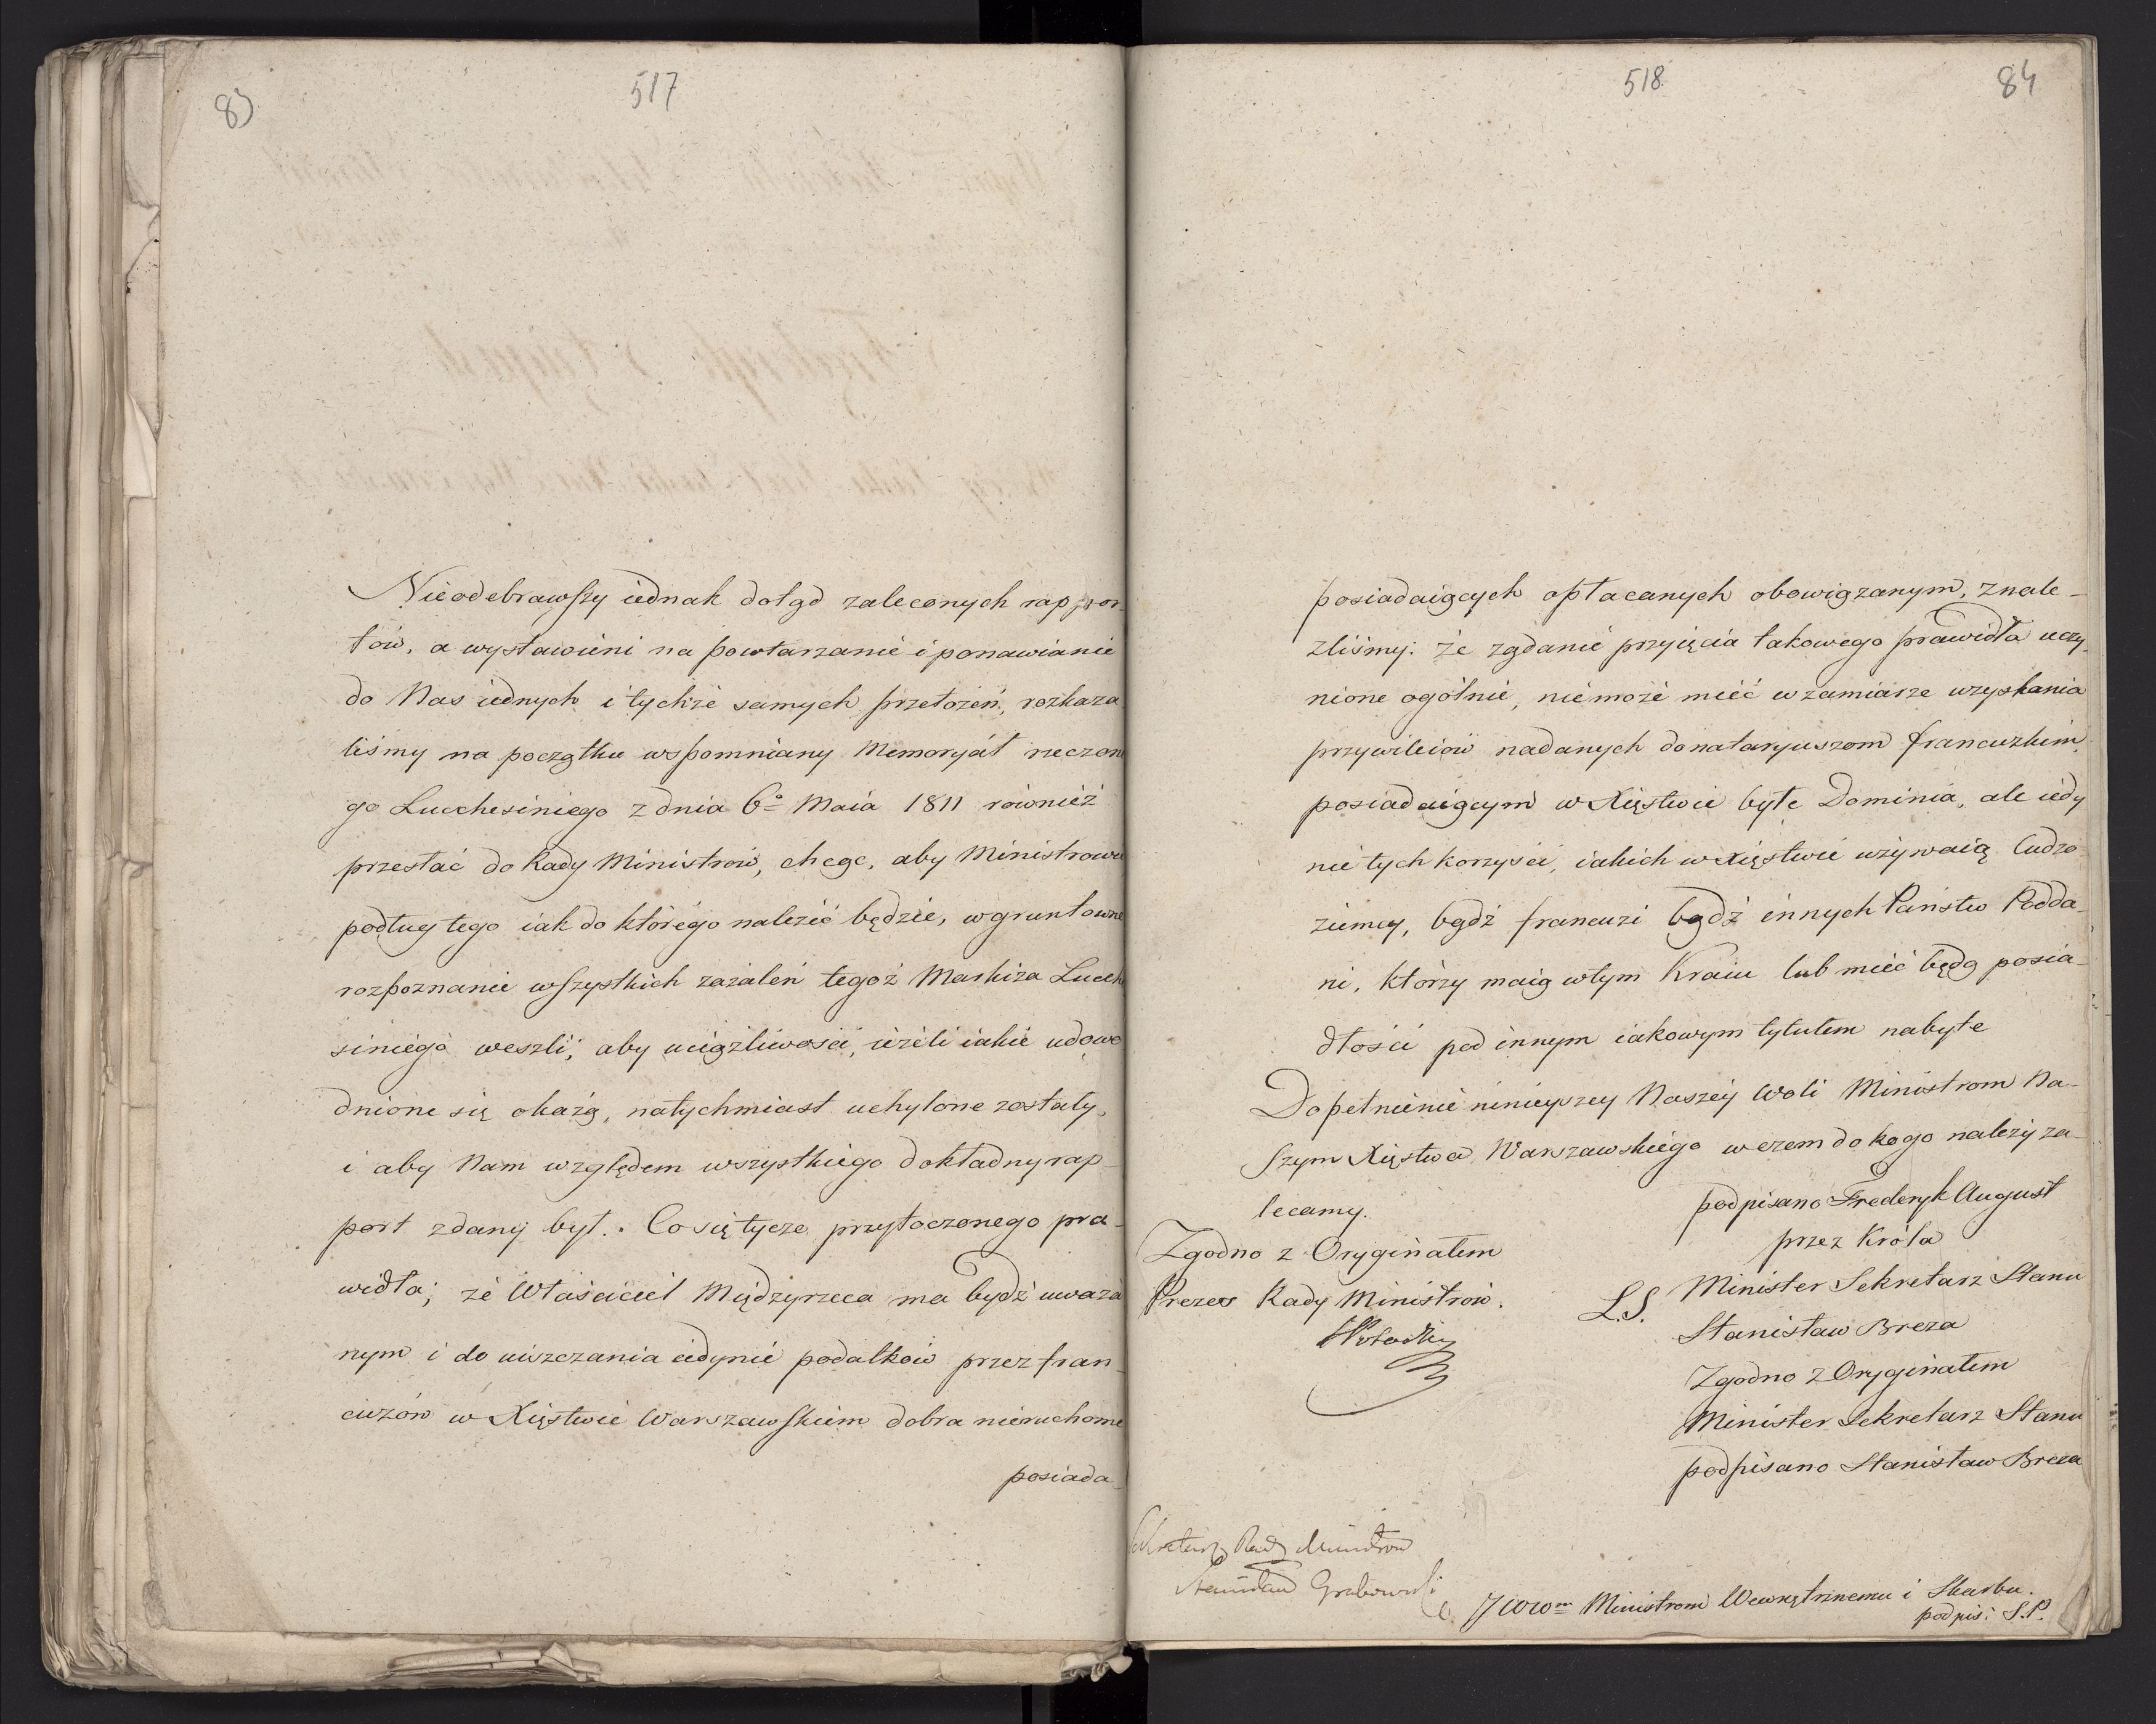 83
517
Nieodebrawszy iednak dotąd zaleconych rappor-
tów, a wystawieni na powtarzanie i ponawianie
do Nas iednych i tychże samych przełożeń, rozkaza
liśmy na początku wspomniany Memoryał rzeczone
go Lucchesiniego z dnia 6º Maia 1811 również
przesłać do Rady Ministrów, chcąc, aby Ministrowie
podług tego iak do którego należić będzie, w gruntowne
rozpoznanie wszystkich zażaleń tegoż Markiza Lucche
siniego weszli; aby uciążliwości, ieżeli iakie udowo
dnione się okażą, natychmiast uchylone zostały,
i aby Nam względem wszystkiego dokładny rap-
port zdany był. Co się tycze przytoczonego pra-
widła; że Właściciel Międzyrzeca ma bydź uważa
nym i do uiszczania iedynie podatków przez fran-
cuzów w Xięstwie Warszawskiem dobra nieruchome
posiada-
518
84
posiadaiących opłacanych obowiązanym, znale-
zliśmy: że żądanie przyięcia takowego prawidła uczy-
nione ogólnie, niemoże mieć w zamiarze uzyskania
przywileiów nadanych donataryuszom francuzkim,
posiadaiącym w Xięstwie byłe Dominia, ale iedy
nie tych korzyści, iakich w Xięstwie używaią Cudzo
ziemcy, bądź francuzi bądź innych Państw Podda-
ni, którzy maią w tym Kraiu lub mieć będą posia-
dłości pod innym iakowym tytułem nabyte
Dopełnienie ninieyszey Naszey Woli Ministrom Na-
szym Xięstwa Warszawskiego w czem do kogo należy za-
lecamy.
podpisano Frederyk August
przez Króla
L.S. Minister Sekretarz Stanu
Stanisław Breza
Zgodno z Oryginałem
Minister Sekretarz Stanu
podpisano Stanisław Breza
Zgodno z Oryginałem
Prezes Rady Ministrów.
Sekretarz Rady Ministrów
Stanisław Grabowski
JWW Ministrom Wewnętrznemu i Skarbu.
podpis: S.P.